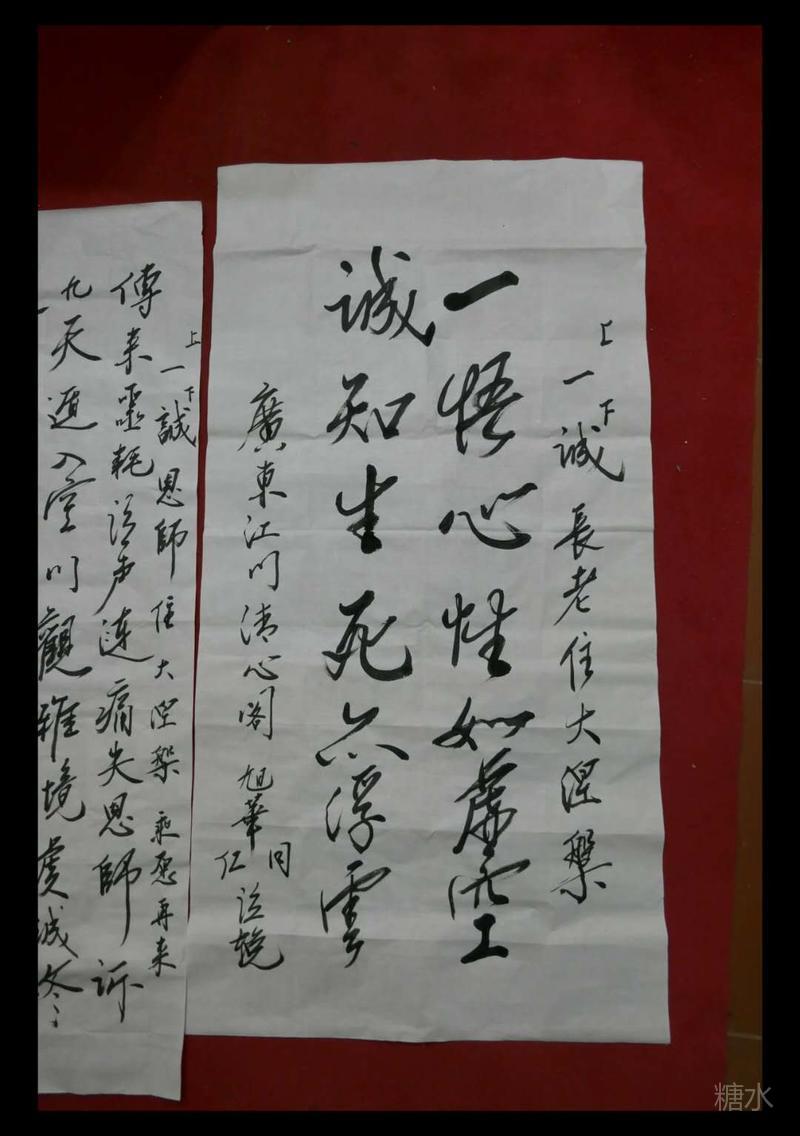 上一下誠長老住大涅槃
一悟心性如虛空
誠知生死亦浮雲
廣東江门清心閣 旭華 同仁 泣挽
上一下誠恩師住大涅槃 乘愿再来
傳来噩耗泣声連痛失恩師訴
九天遁入空门觀雅境虔誠
糖水